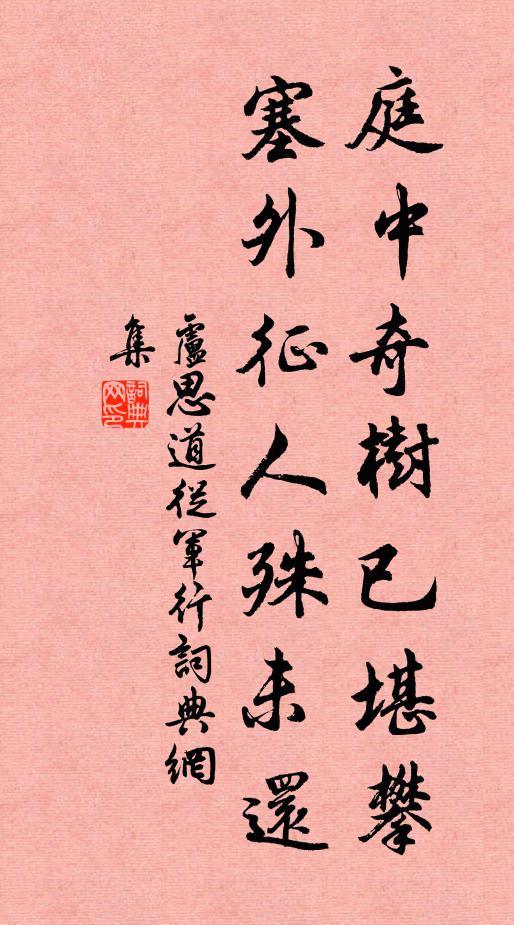 庭中奇樹已堪攀
塞外征人殊未還
盧思道從軍行詞典網
集
詞典
网印